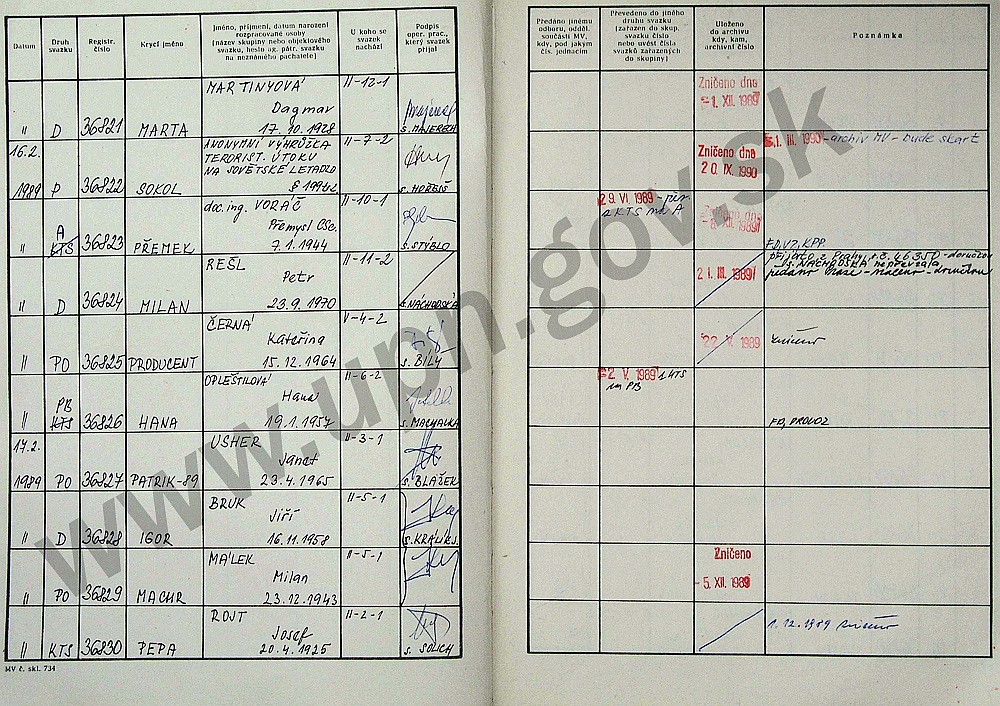 Datum
Druh svazku
Registr. číslo
Krycí jméno
Jméno, příjmení, datum narození
rozpracované osoby
(název skupiny nebo objektového
svazku, heslo ag. pátr. svazku
na neznámého pachatele)
U koho se
svazek
nachází
Podpis
oper. prac.,
který svazek
přijal
Předáno jinému
odboru, odděl.
součásti MV,
kdy, pod jakým
čís. jednacím
Převedeno do jiného
druhu svazku
(zařazen do skup.
svazku číslo
nebo uvést čísla
svazků zařazených
do skupiny)
Uloženo
do archivu
kdy, kam,
archivní číslo
Poznámka
MARTINYOVÁ II-12-1
Dagmar
" D 36821 MARTA 17.10.1928 s. MAJERECH
Zničeno dne
-1. XII. 1989
16.2. ANONYMNÍ VÝHRŮŽKA II-7-2
TERORIST. ÚTOKU
NA SOVĚTSKÉ LETADLO
1989 P 36822 SOKOL s. HOŘEJŠ
Zničeno dne
20. IX. 1990
1. III. 1990 - archiv MV - bude skart
doc. ing. VORÁČ II-10-1
A Přemysl CSc.
" KTS 36823 PŘEMEK 7.1.1944 s. STÝBLO
29. VI. 1989
z KTS na A
Zničeno dne
1989
FD, VZ, KPP
REŠL II-11-2
Petr
" D 36824 MILAN 23.9.1970 s. NÁCHODSKÁ
21. III. 1989
s. NÁCHODSKÁ nepřevzala
ČERNÁ V-4-2
Kateřina
" PO 36825 PRODUCENT 15.12.1964 s. BÍLÝ
22. V. 1989
zničeno
OPLEŠTILOVÁ II-6-2
PB Hana
" KTS 36826 HANA 19.1.1957 s. MACHALKA
-2. V. 1989 z KTS
na PB
FD, PROVOZ
17.2. USHER II-3-1
Janet
1989 PO 36827 PATRIK-89 23.4.1965 s. BLAŽEK
BRUK II-5-1
Jiří
" D 36828 IGOR 16.11.1958 s. KRÁLÍK J.
MÁLEK II-5-1
Milan
" PO 36829 MACHR 23.12.1943
Zničeno
-5. XII. 1989
ROJT II-2-1
Josef
" KTS 36830 PEPA 20.4.1925 s. SOLICH
1.12.1989 zničeno
MV č. skl. 734
www.upn.gov.sk